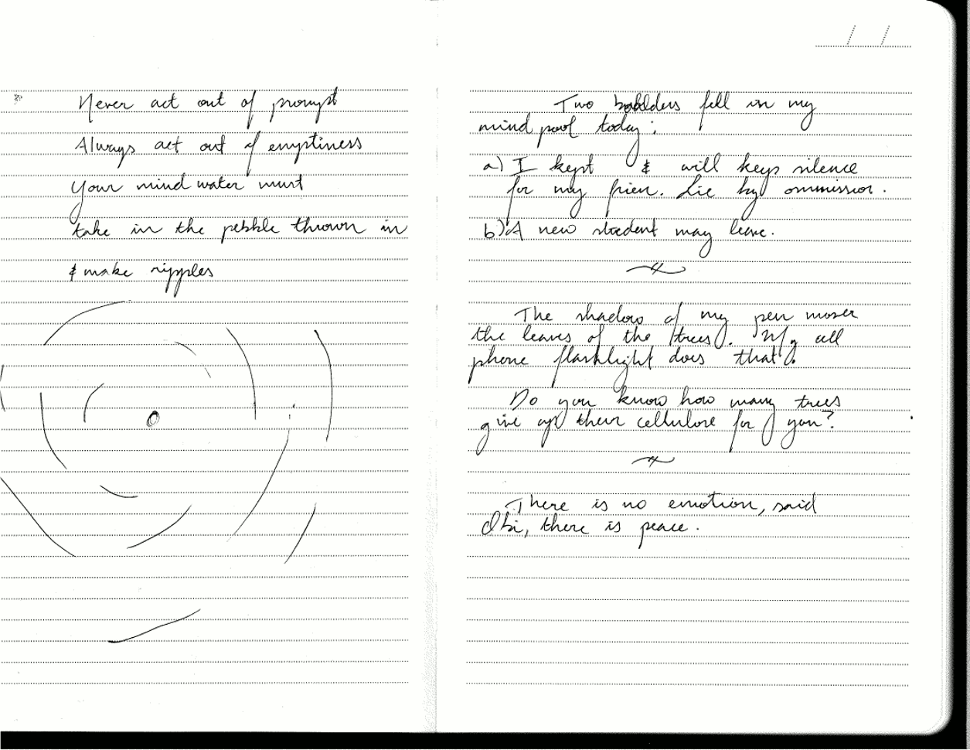 Never act out of prompt
Always act out of emptiness
Your mind water must
take in the pebble thrown in
& make ripples
Two boulders fell in my
mind pool today:
a) I kept & will keep silence
for my frien. Lie by ommission.
b) A new student may leave.
The shadow of my pen moves
the leaves of the trees. My cell
phone flashlight does that.
Do you know how many trees
give up their cellulose for you?
There is no emotion, said
Obi, there is peace.